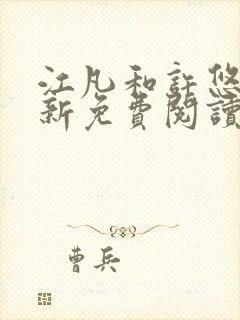 江凡和許悠
新免費閱讀
曹兵